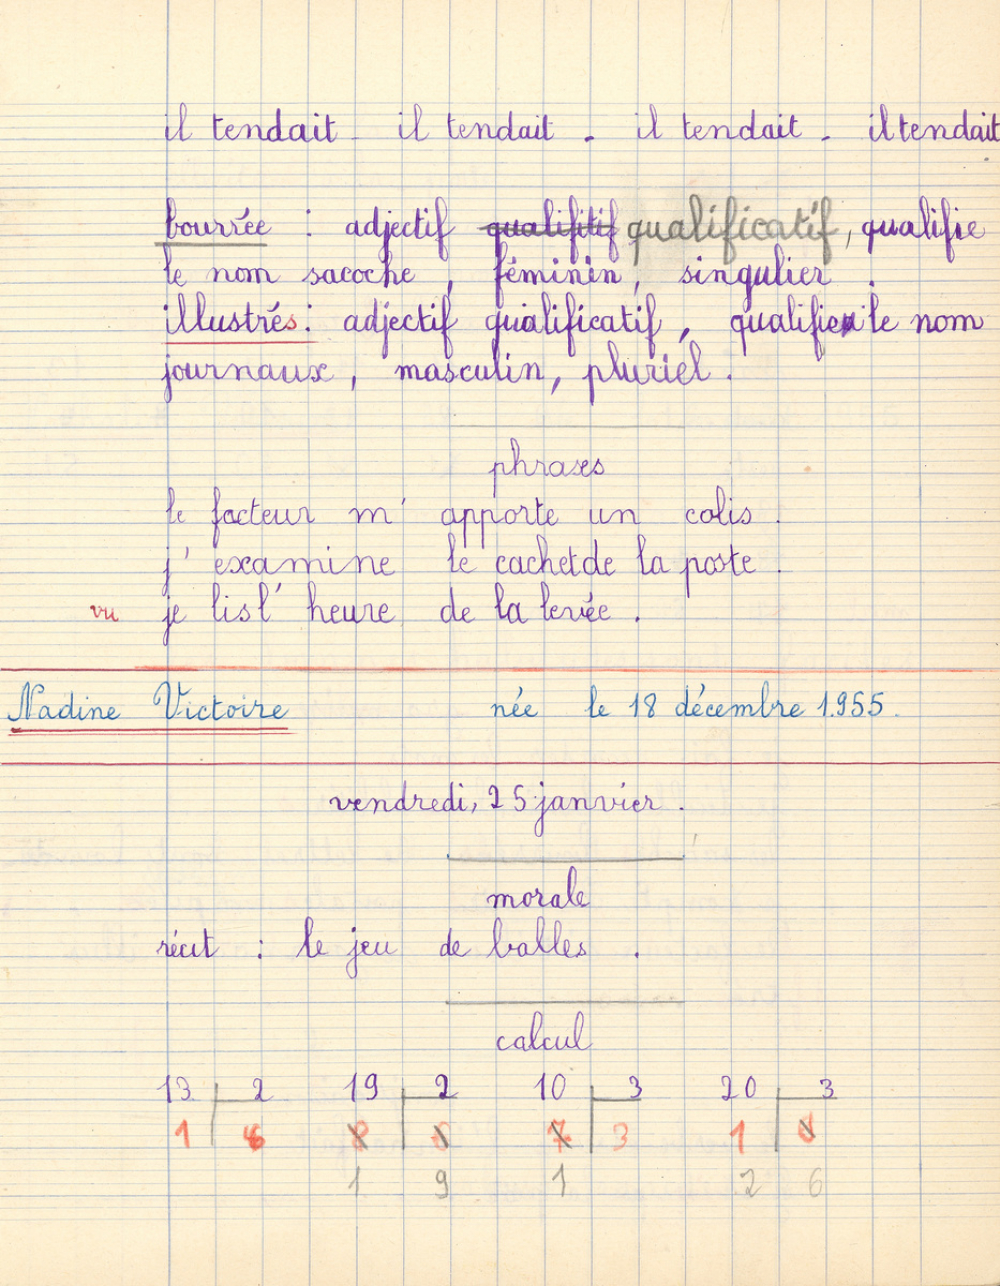 il tendait - il tendait - il tendait - il tendait
bourrée : adjectif qualifitif qualificatif, qualifie
le nom sacoche, féminin, singulier.
illustrés : adjectif qualificatif, qualifie le nom
journaux, masculin, pluriel.
phrases
le facteur m' apporte un colis.
j' examine le cachet de la poste.
vu je lis l' heure de la levée.
Nadine Victoire née le 18 décembre 1955.
vendredi, 25 janvier.
morale
récit : le jeu de balles.
calcul
13 2 19 2 10 3 20 3
1 6 7 3 1
1 9 1 2 6